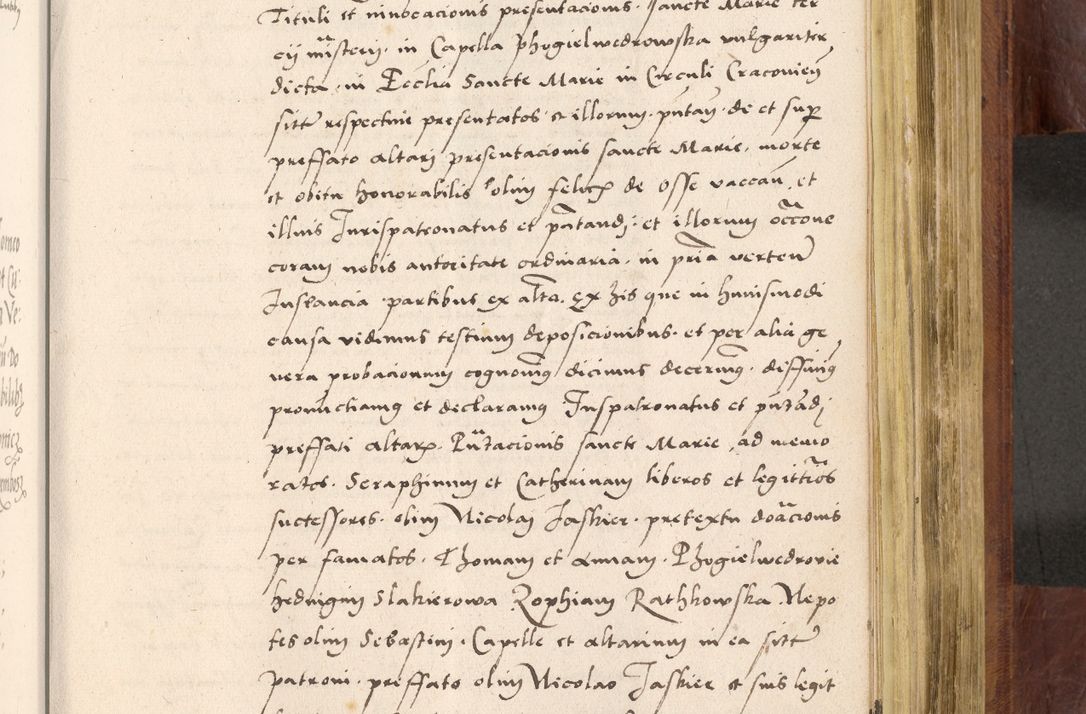 Tituli et invocacionis presentacionis sancte Marie ter
cij mīsterij in Capella Phogielwedrowska vulgariter
dicta in Ecclia Sancte Marie in Circuli Cracovien
sitt respective presentatos et illorum pntan de et sup
preffato altarj presentacionis sancte Marie, morte
et obitu honorabilis olim felicis de Osse vaccan, et
illius Jurispatronatus et pntandj et illorum occōne
coram nobis autoritate ordinaria in pria verten
Instancia partibus ex alta. ex his que in huiusmodi
causa vidimus testium deposicionibus et per alia ge
nera probacionum cognovimus dicimus decernimus diffinimus
pronunctiamus et declaramus Juspatronatus et pntandj
preffati altaris Pntacionis sancte Marie, ad memo
ratos Seraphinum et Catherinam liberos et legittios
successores olim Nicolaj Jaskier pretextu doacionis
per famatos Thomam et Annam Phogielwedrovie
hedvigim Slakierowa Zophiam Rathkowska Nepo
tes olim Sebastini Capelle et altarium in ea sitt
patroni preffato olim Nicolao Jaskier et suis legit